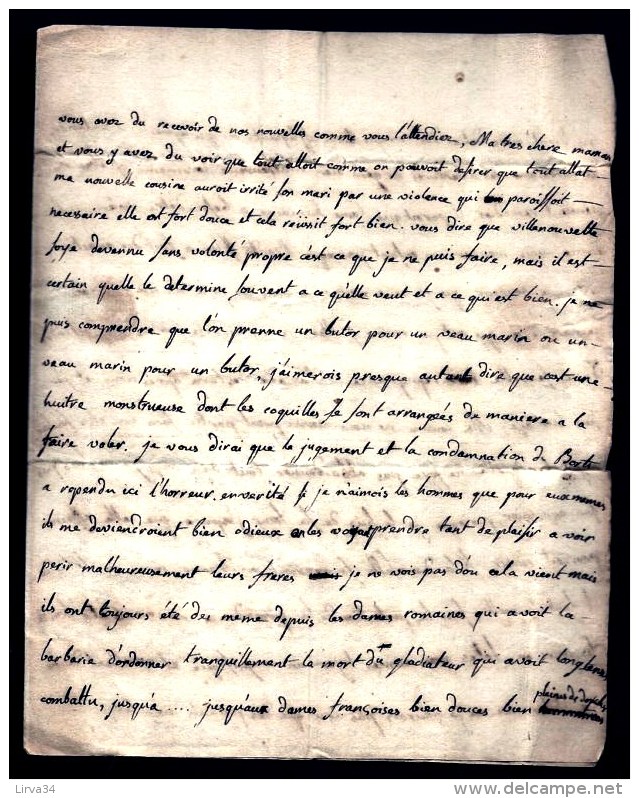 vous avez du recevoir de nos nouvelles comme vous l'attendiez, Ma tres chere maman
et vous y avez du voir que tout alloit comme on pouvoit desirer que tout allat
ma nouvelle cousine auroit irrité son mari par une violence qui paroissoit
necessaire elle est fort douce et cela réussit fort bien. vous dire que villenouvelle
soye devennu sans volonté propre c'est ce que je ne puis faire, mais il est
certain quelle le determine souvent a ce qu'elle veut et a ce qui est bien. je ne
puis comprendre que l'on prenne un butor pour un veau marin ou un
veau marin pour un butor, j'aimerois presque autant dire que c'est une
huitre monstrueuse dont les coquilles se sont arrangées de maniere a la
faire voler. je vous dirai que le jugement et la condamnation de
a rependu ici l'horreur. en verité si je n'aimois les hommes que pour eux memes
ils me deviendroient bien odieux en les voyant prendre tant de plaisir a voir
perir malheureusement leurs freres je ne vois pas d'ou cela vient mais
ils ont toujours été de meme depuis les dames romaines qui avoit la
barbarie d'ordonner tranquillement la mort du gladiateur qui avoit longtems
combattu, jusqu'a .... jusqu'aux dames françoises bien douces bien
Lirva34
delcampe.net